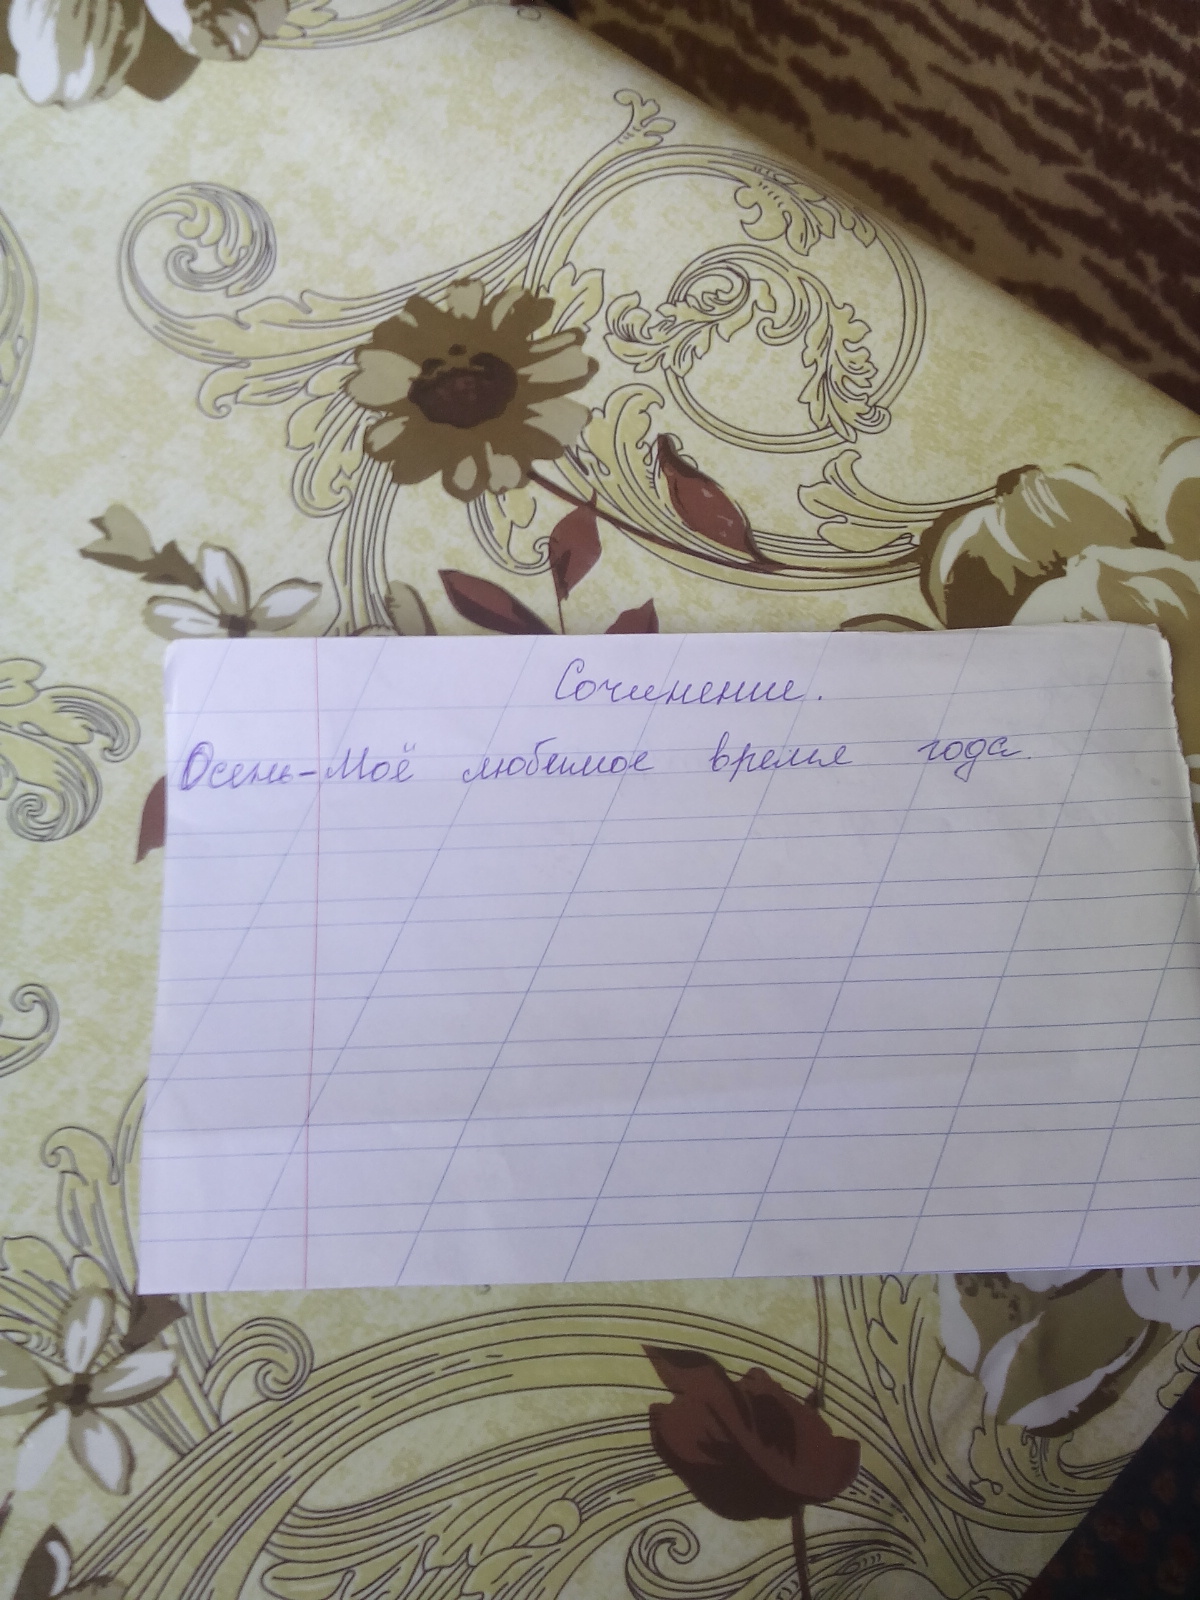 Сочинение.
Осень-Моё любимое время года.